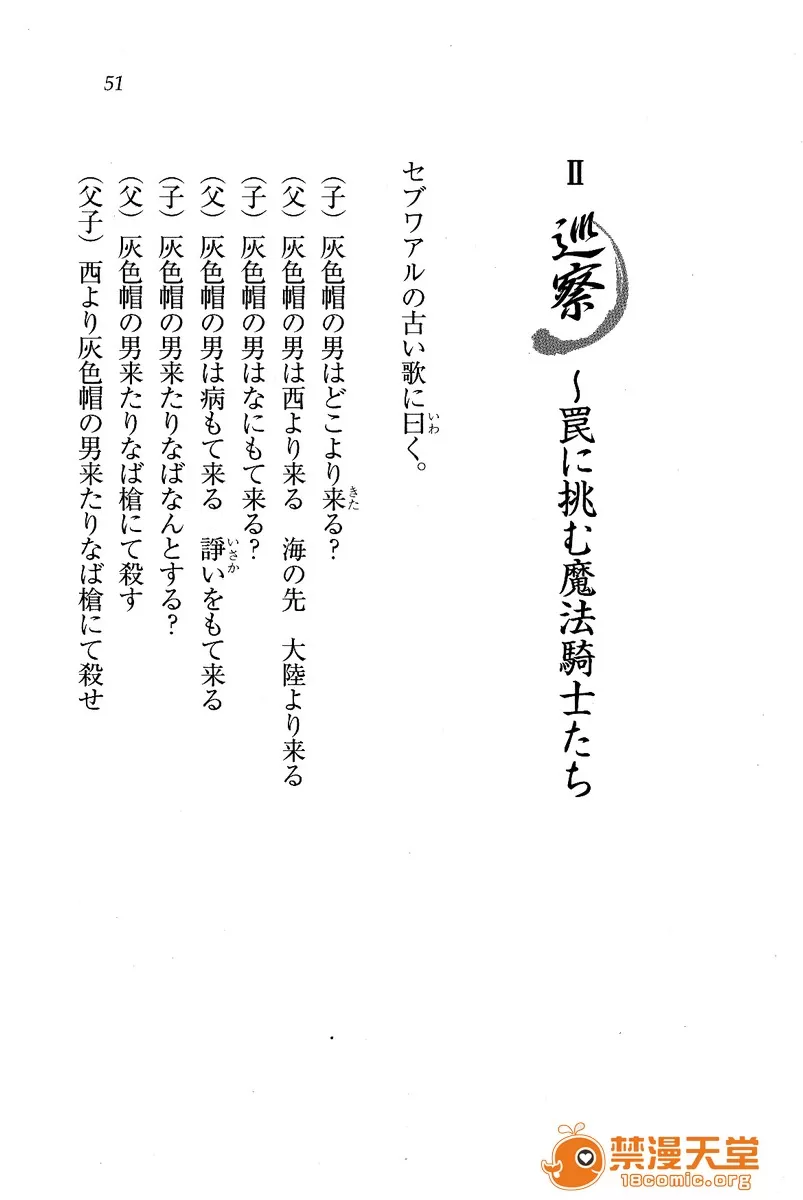 51
Ⅱ 巡察 ～罠に挑む魔法騎士たち
セブワアルの古い歌に曰く。
いわ
（子）灰色帽の男はどこより来る？
きた
（父）灰色帽の男は西より来る　海の先　大陸より来る
（子）灰色帽の男はなにもて来る？
（父）灰色帽の男は病もて来る　諍いをもて来る
いさか
（子）灰色帽の男来たりなばなんとする？
（父）灰色帽の男来たりなば槍にて殺す
（父子）西より灰色帽の男来たりなば槍にて殺せ
禁漫天堂
18comic.org